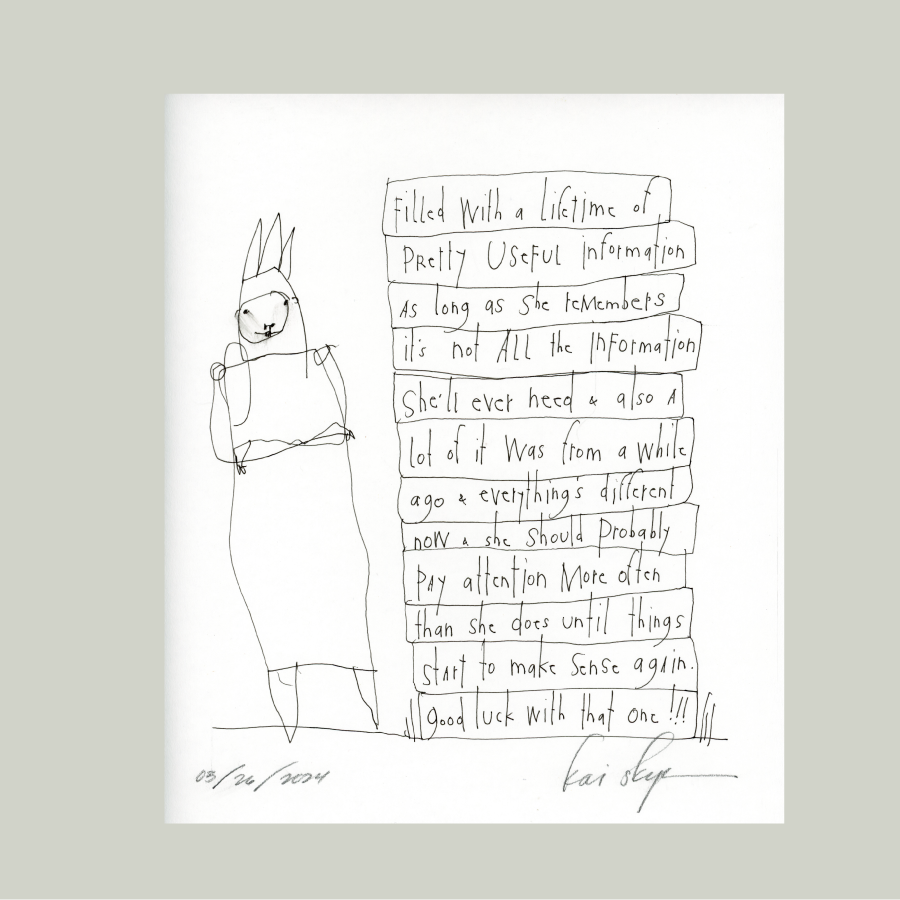 Filled With a lifetime of
PRetty USeFUL information
As long as She reMembers
it's not ALL the InFormation
She'll ever need & also A
lot of it Was from a While
ago & everything's different
noW & she Should Probably
PAy attention More often
than she does until things
stArt to make Sense agAin.
good luck With that one!!!
03/26/2024
kai skye